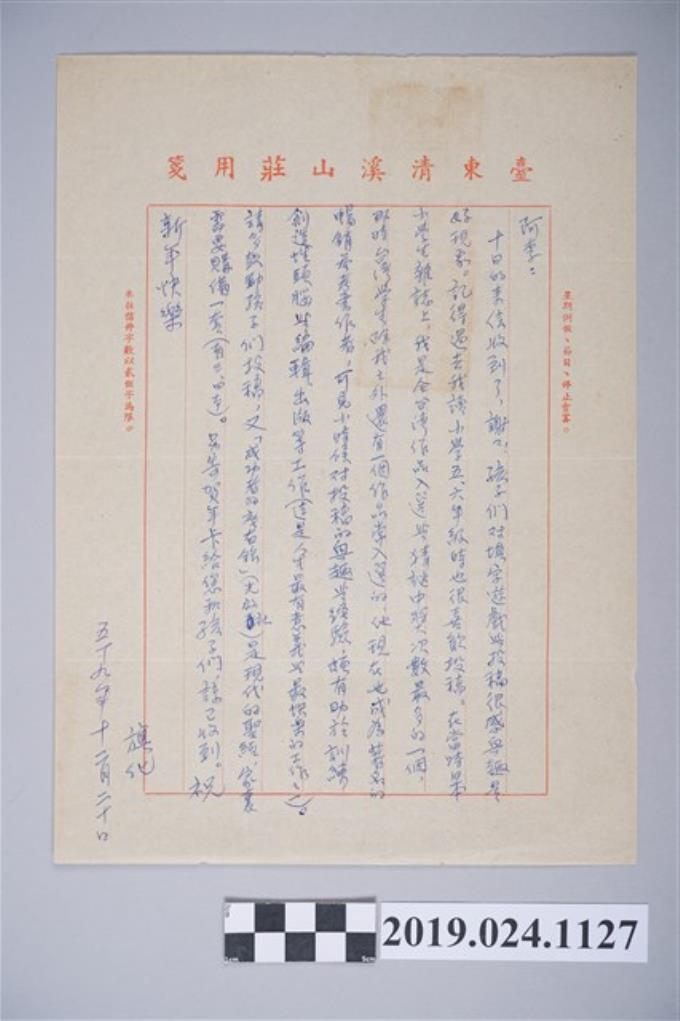 臺東清溪山莊用箋
星期例假、節日、停止會客。
阿季：
十日的來信收到了，謝謝。孩子們對填字遊戲與投稿很感興趣是
好現象。記得過去我讀小學五、六年級時也很喜歡投稿。在當時日本
小學生雜誌上，我是全台灣作品入選與猜謎中獎次數最多的一個，
那時台灣學生除我之外還有一個作品常入選的，他現在也成為著名的
暢銷參考書作者，可見小時候對投稿的興趣與經驗，頗有助於訓練
創造性頭腦與編輯出版等工作（這是人生最有意義與最快樂的工作之一）。
請多鼓勵孩子們投稿，又「成功者的座右銘」（光啟社）是現代的聖經，家裏
需要購備一套（有三、四本）。另寄賀年卡給您和孩子們，諒已收到。祝
新年快樂
旗化
五十九年十二月二十日
來往信件字數以貳佰字為限。
2019.024.1127
0
1cm
5cm